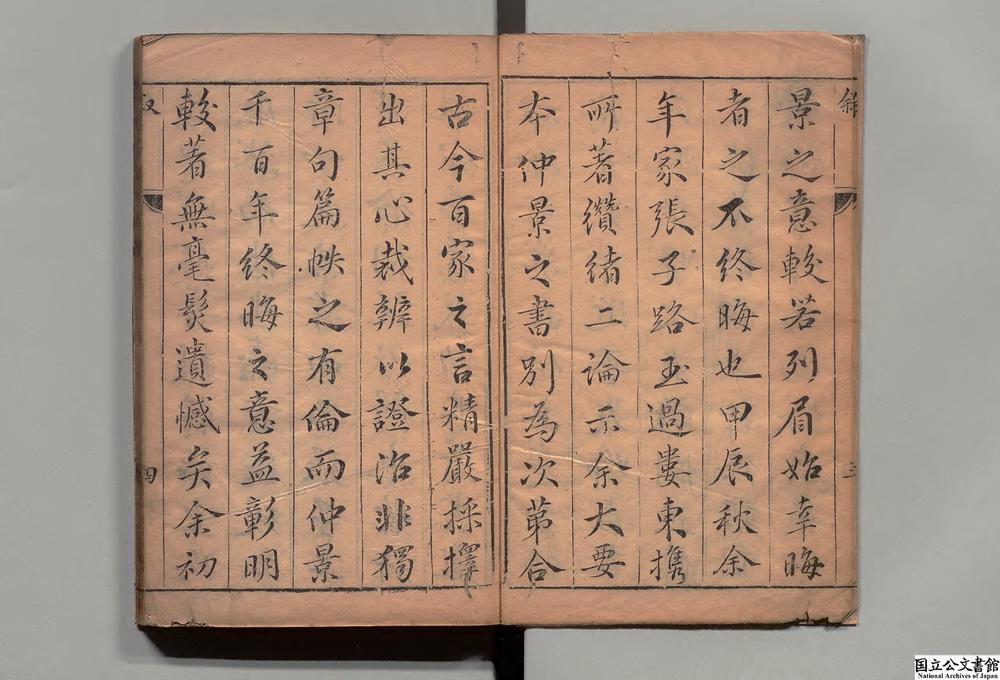 景之意較若列眉始幸晦
者之不終晦也甲辰秋余
年家張子路玉過婁東攜
所著纘緒二論示余大要
本仲景之書別為次第合
古今百家之言精嚴採擇
出其心裁辨以證治非獨
章句篇帙之有倫而仲景
千百年終晦之意益彰明
較著無毫髮遺憾矣余初
叙
四
国立公文書館
National Archives of Japan